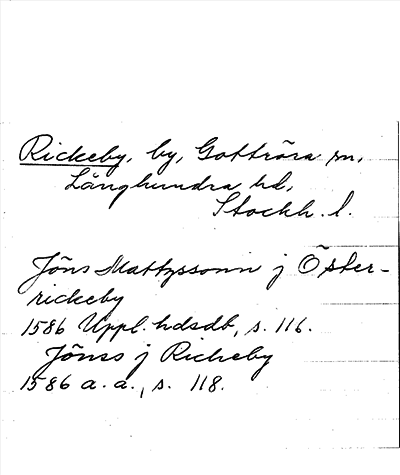 Rickeby, by, Gottröra sn,
Långhundra hd,
Stockh. l.
Jöns Mattzssonn j Öster-
rickeby
1586 Uppl. hdsdb, s. 116.
Jönss j Rickeby
1586 a. a., s. 118.